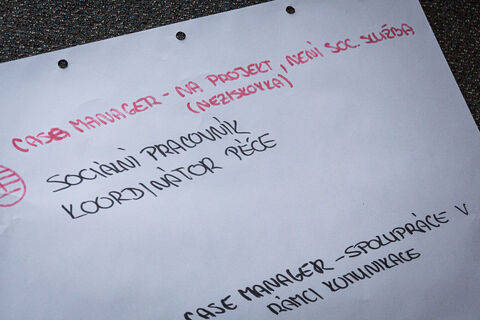 CASE MANAGER - NA PROJEKT, NENÍ SOC. SLUŽBA
(NEZISKOVKA)
SOCIÁLNÍ PRACOVNÍK
KOORDINÁTOR PÉČE
CASE MANAGER - SPOLUPRÁCE V
RÁMCI KOMUNIKACE